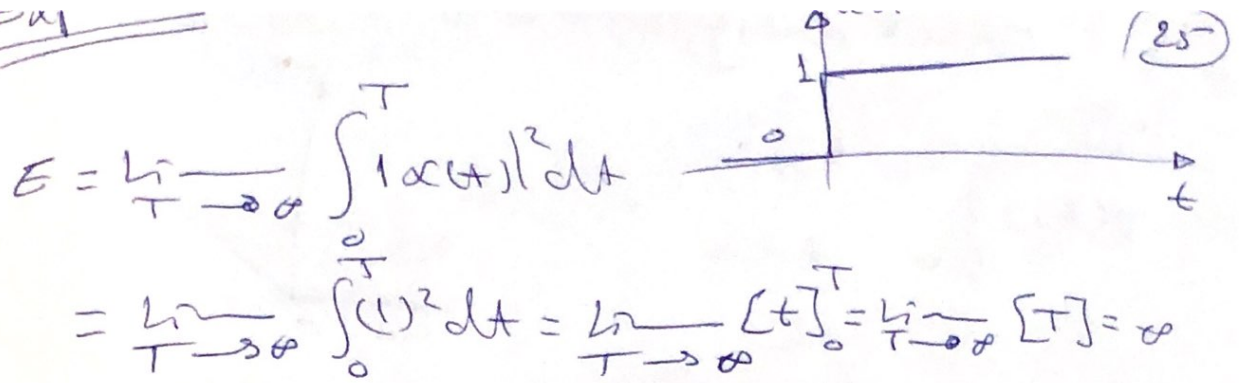 25
1
0
t
E = Lim T→∞ ∫₀ᵀ |x(t)|² dt
= Lim T→∞ ∫₀ᵀ (1)² dt = Lim T→∞ [t]₀ᵀ = Lim T→∞ [T] = ∞